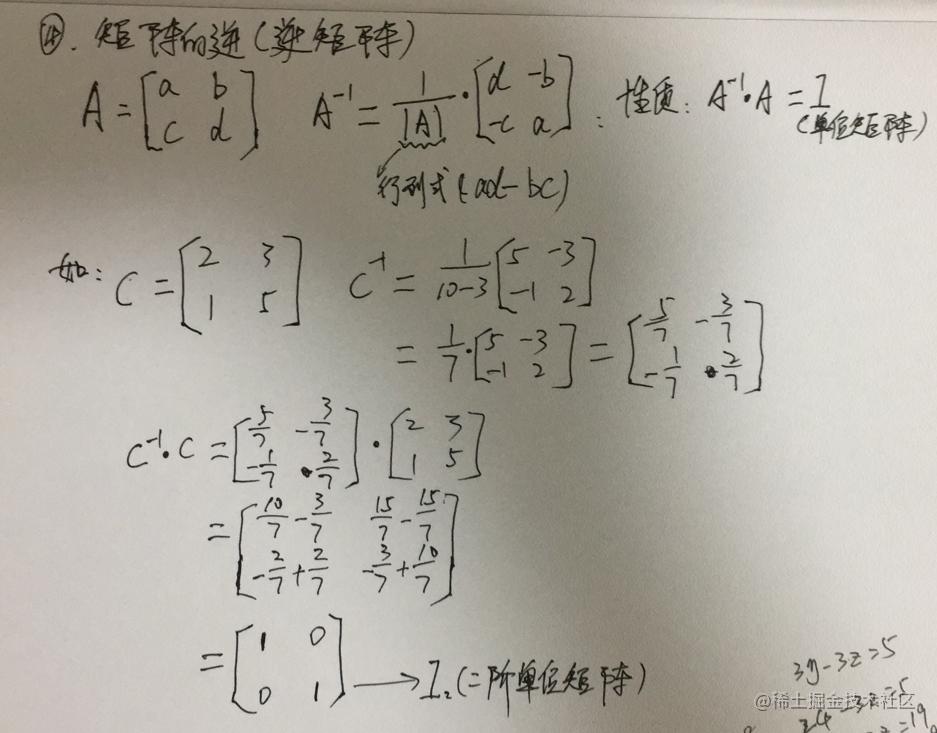 ④. 矩阵的逆(逆矩阵)
A = [a b; c d] A⁻¹ = 1/|A| · [d -b; -c a] ; 性质: A⁻¹·A = I
(单位矩阵)
行列式(ad-bc)
如: C = [2 3; 1 5] C⁻¹ = 1/(10-3) [5 -3; -1 2]
= 1/7 · [5 -3; -1 2] = [5/7 -3/7; -1/7 2/7]
C⁻¹·C = [5/7 -3/7; -1/7 2/7] · [2 3; 1 5]
= [10/7 - 3/7 15/7 - 15/7; -2/7 + 2/7 -3/7 + 10/7]
= [1 0; 0 1] → I₂(二阶单位矩阵)
3y-3z=5
@稀土掘金技术社区